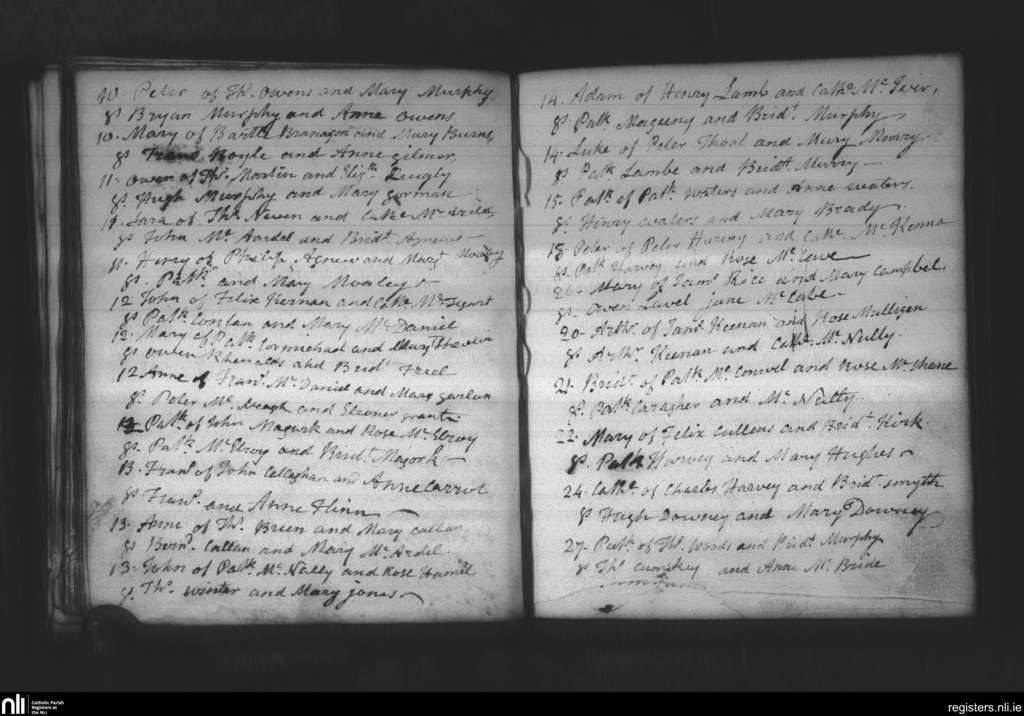 10. Peter of Ths. Owens and Mary Murphy,
Sps Bryan Murphy and Anne Owens.
10. Mary of Barth. Branagan and Mary Burns,
Sps Frans. Boyle and Anne Gilmor,
11. Owen of Ths. Martin and Eliz.
Sps Hugh Murphy and Mary Gorman
of Ths. Neven and Cathe. Mc
Sps John Mc Aardel and Bridt. Agnew
11. Henry of Philip Agnew and Mary
Sps. Patk. and Mary
12 John of Felix Kernan and Cathe Mc
Sps Patk Conlan and Mary Mc Daniel
12. Mary of Patk. Carmichael and Mary
Sps and Bridt. Freel
12 Anne of Frans. Mc Daniel and Mary Garlan
Sps. Peter Mc. and Eleoner Grant
Patk. of John Magurk and Rose Mc Elroy
Sps. Patk. Mc Elroy and Bridt. Magork
13. Frans. of John Callaghan and Anne Carrol
Sps Frans. and Anne Flinn
13. Anne of Ths. Breen and Mary Callan
Sps Bern. Callan and Mary Mc Ardel.
13. John of Patk. Mc Nally and Rose Hamil
Sps. Ths. Winter and Mary Jones
14. Adam of Henry Lamb and Cathe Mc Iver,
Sps. Patk. and Bridt. Murphy
14. Luke of Peter and Mary Murry.
Sps Patk Lambe and Bridt. Murry
15. Patk. of Patk. Waters and Anne Waters.
Sps. Henry Waters and Mary Brady.
18. Peter of Peter Harvey and Cathe. Mc Kenna
Sps. Patk Harvey and Rose Mc
20. Mary of Jams. Rice and Mary Campbel.
Sps. Owen Jane Mc Cabe
20. Arthr. of Jams. Keenan and Rose Mulligan
Sps Arthr. Keenan and Cathe. Mc Nally.
21. Bridt. of Patk Mc Convel and Rose Mc Shane
Sps. Patk Caragher and Mc Nally.
22. Mary of Felix Cullens and Bridt. Kirk
Sps. Patk Harvey and Mary Hughes
24. Cathe. of Charles Harvey and Bridt. Smyth
Sps Hugh Downey and Mary Downey
27. Patk. of Ths. Woods and Bridt. Murphy
Sps Ths. and Anne Mc Bride
nli
Catholic Parish
Registers at
the NLI
registers.nli.ie